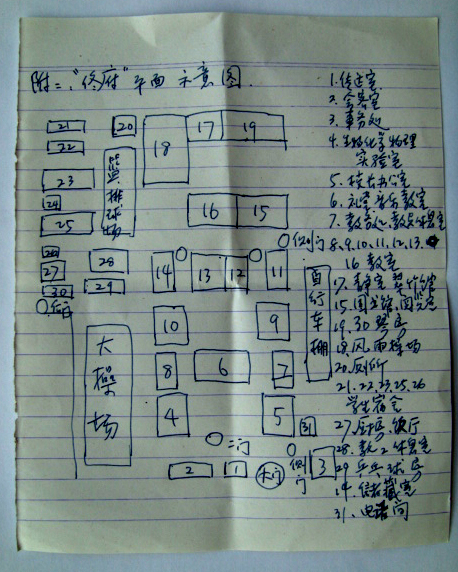 附二："佟府"平面示意图
1.传达室
2.会客室
3.事务处
4.生物化学物理
实验室
5.校长办公室
6.礼堂音乐教室
7.教务处、教员休息室
8.9.10.11.12.13.
16教室
17.教室
15.图书馆、阅览室
19.30琴房
18.风雨操场
20.厕所
21.22.23.25.26
学生宿舍
27.厨房、饭厅
28.教工休息室
29.乒乓球房
14.储藏室
31.电话间
21
22
20
23
24
25
篮排球场
18
17
19
16
15
侧门
26
27
28
30
29
后门
14
13
12
11
自行车棚
10
9
大操场
8
6
7
4
5
31
二门
侧门
2
1
大门
3